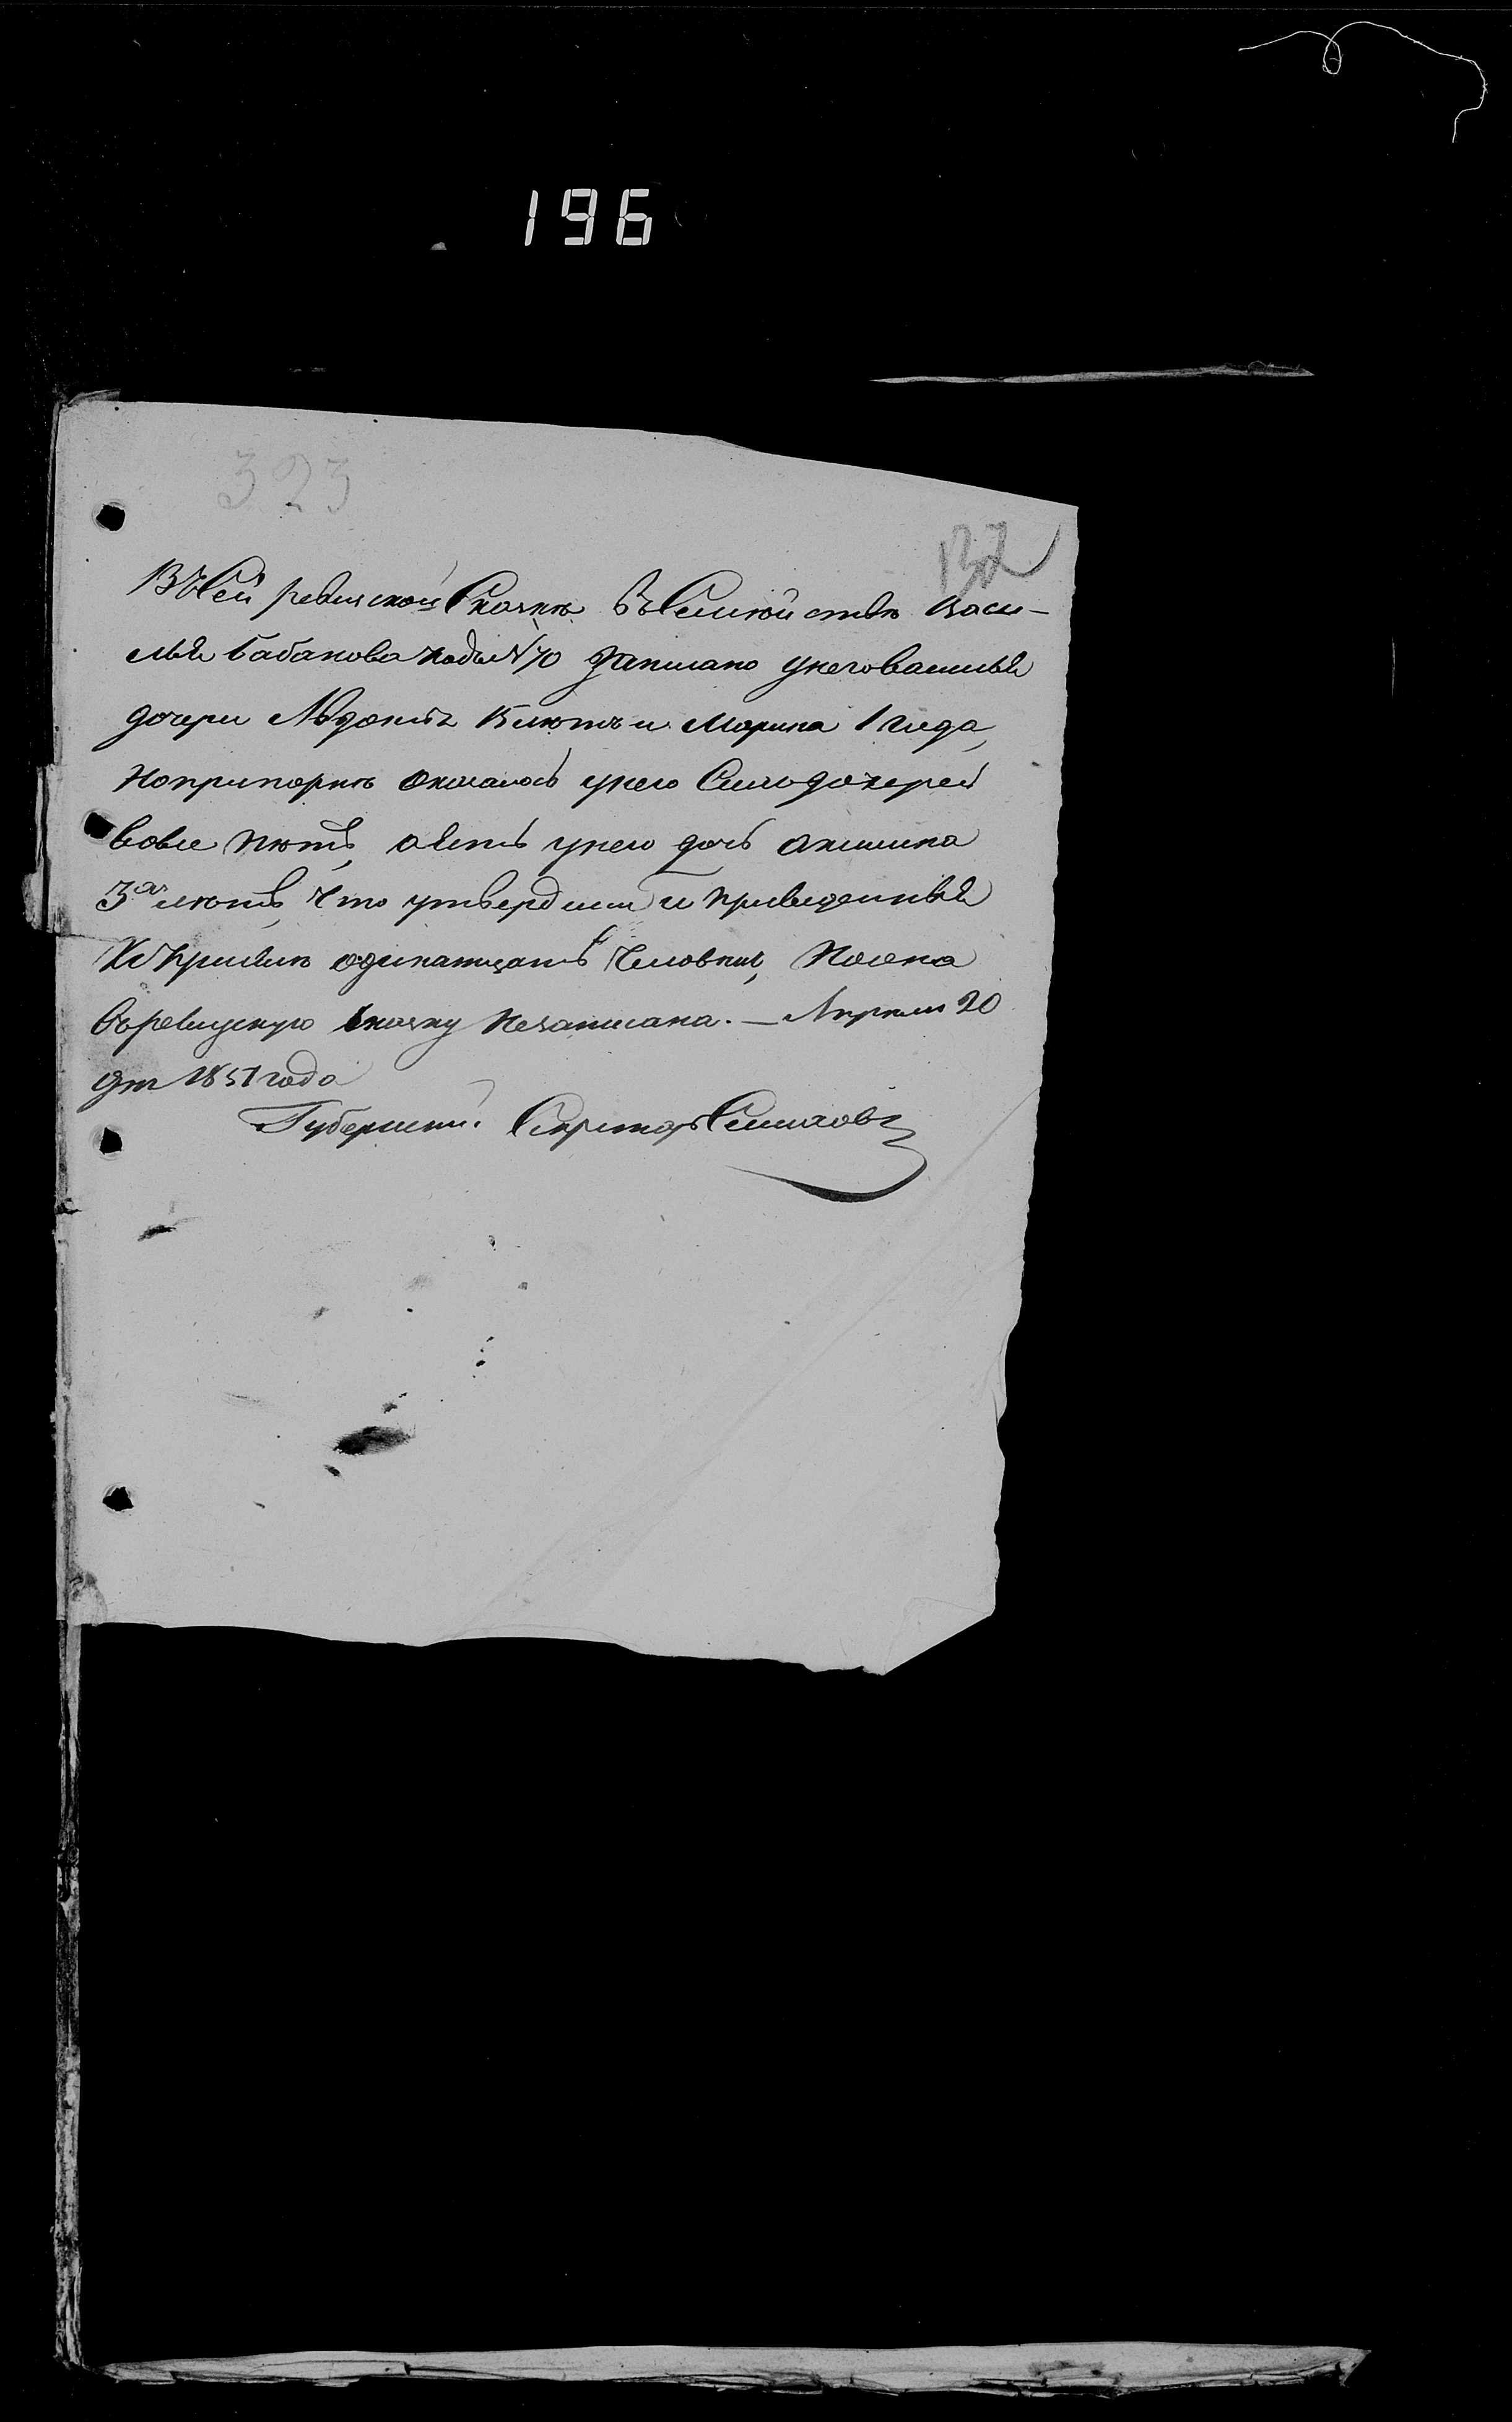 196
323
132
Въ сей ревизской Сказкѣ въ Семействѣ Васи-
лья Бабанова подъ № 70 записано унего Василья
дочери Авдотья 15 лѣтъ и Марина 1 года,
Но при поркѣ оказалось унего Сихъ дочерей
вовсе нѣтъ, а есть унего дочь Акилина
3х лѣтъ, что утвердили и приведенныя
Къ присягѣ одинатцать человекъ, Но она
въ ревизскую сказку незаписана. — Апреля 20
дня 1851 года
Губернскій Секретарь